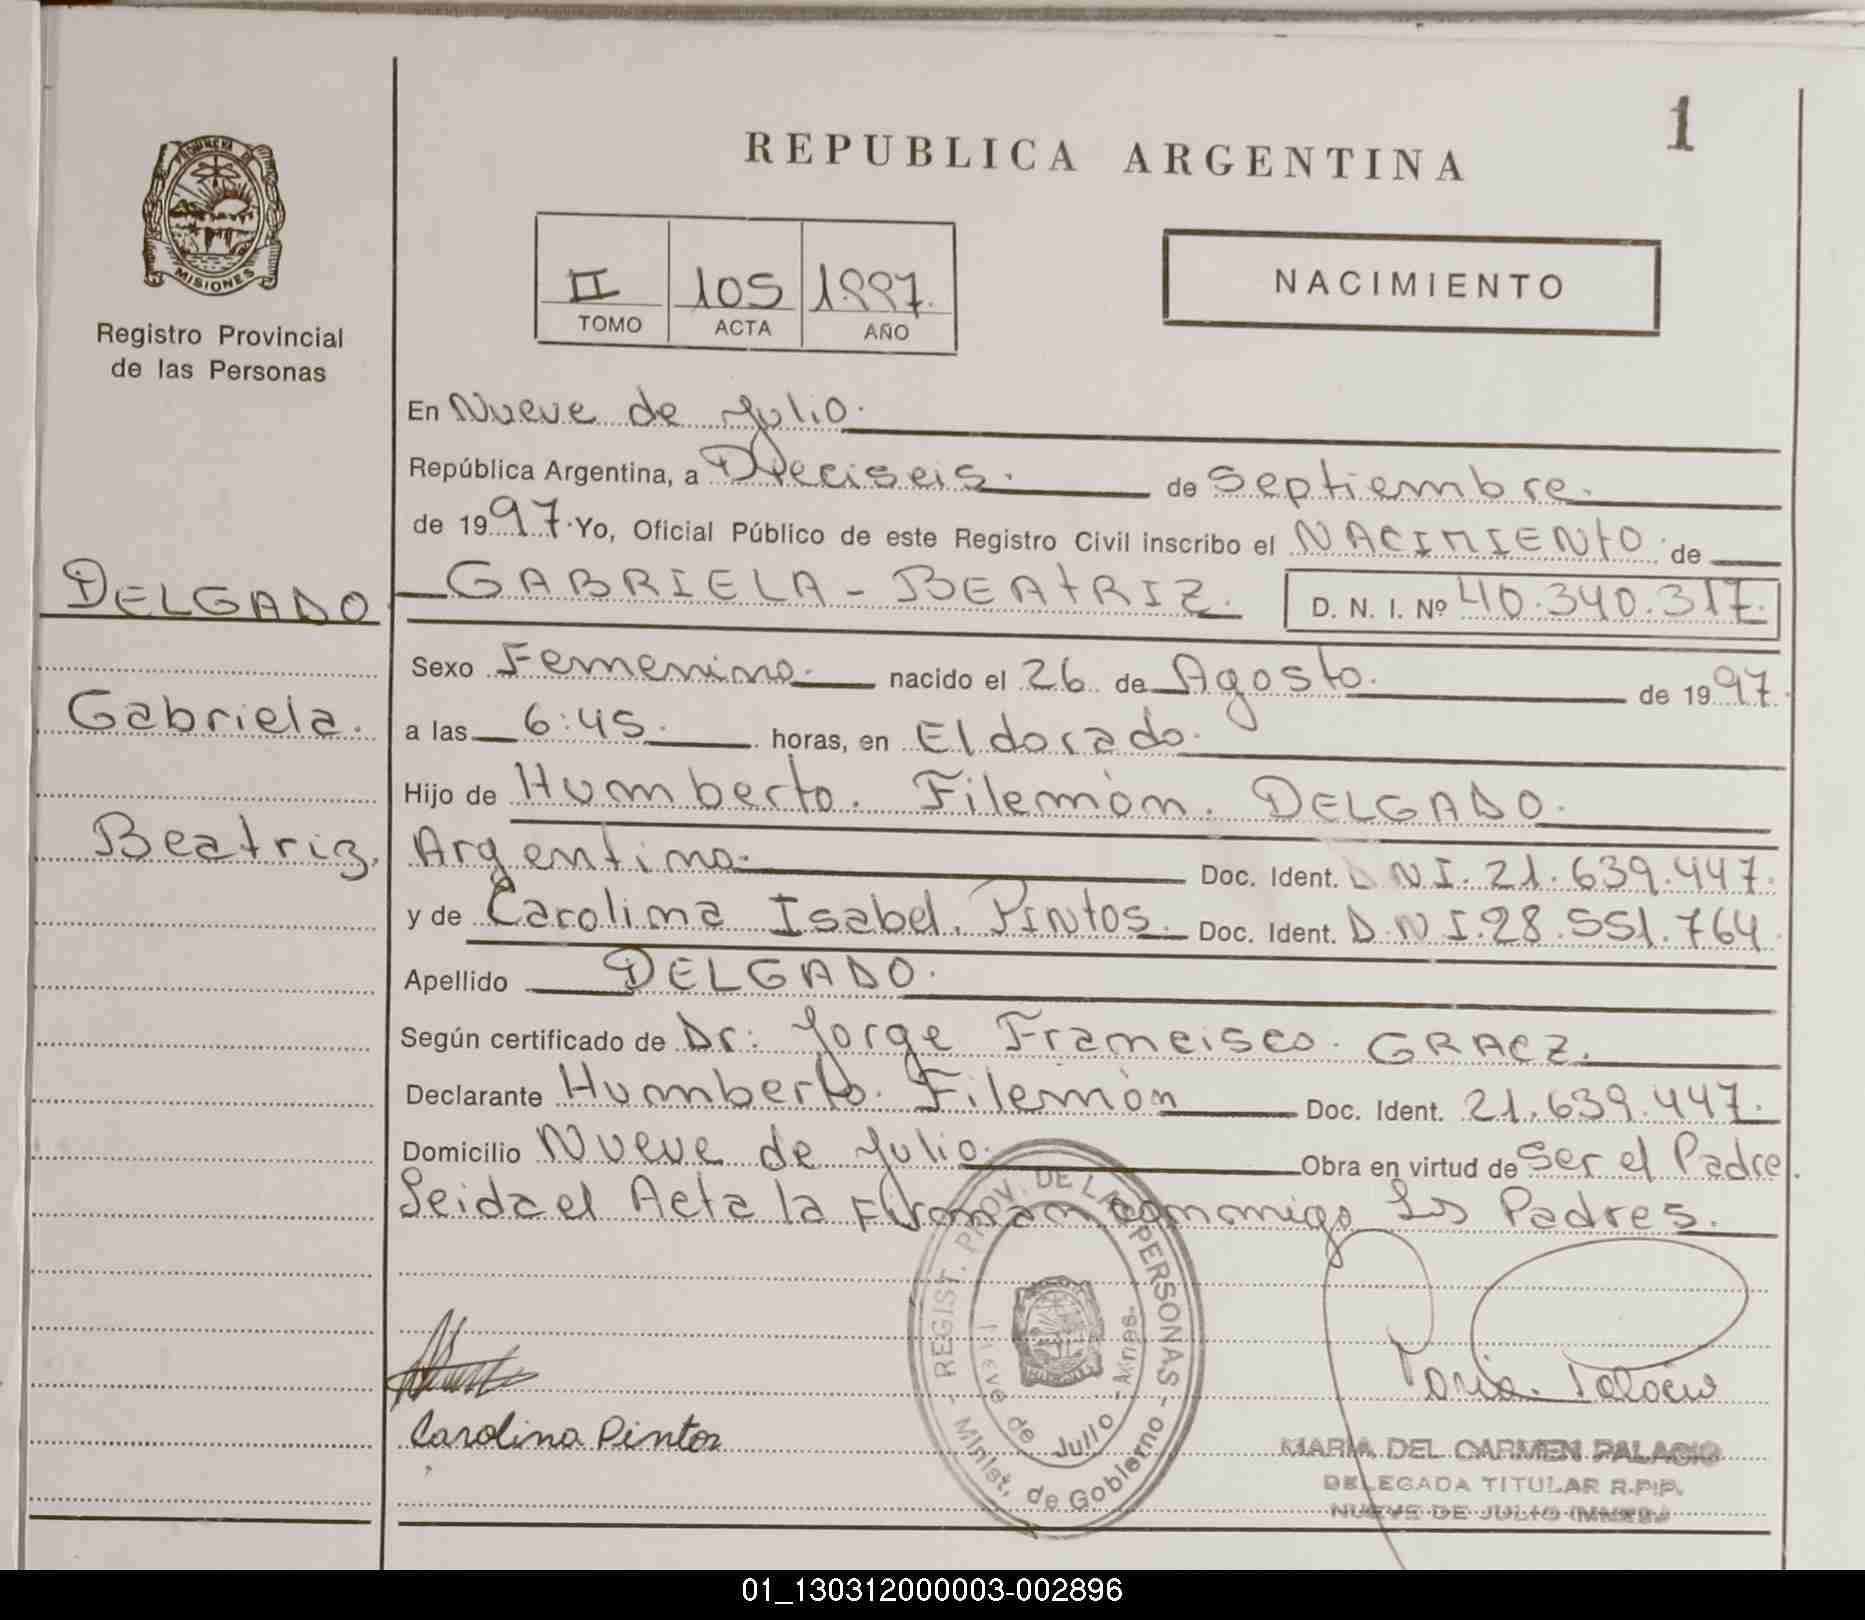 REPUBLICA ARGENTINA
1
PROVINCIA DE
MISIONES
Registro Provincial
de las Personas
II 105 1997.
TOMO ACTA AÑO
NACIMIENTO
En Nueve de Julio.
República Argentina, a Dieciseis. de Septiembre.
de 1997. Yo, Oficial Público de este Registro Civil inscribo el NACIMIENTO de
DELGADO
GABRIELA - BEATRIZ. D. N. I. Nº 40.340.317.
Sexo Femenino. nacido el 26 de Agosto. de 1997.
Gabriela.
a las 6:45. horas, en Eldorado.
Hijo de Humberto. Filemón. DELGADO.
Beatriz.
Argentino. Doc. Ident. DNI. 21.639.447.
y de Carolina Isabel. Pintos. Doc. Ident. D.N.I. 28.551.764
Apellido DELGADO.
Según certificado de Dr: Jorge Francisco. GRACZ.
Declarante Humberto. Filemón Doc. Ident. 21.639.447.
Domicilio Nueve de Julio. Obra en virtud de Ser el Padre.
Leida el Acta la Firman conmigo Los Padres.
REGIST. PROV. DE LAS PERSONAS
Nueve de Julio - Mnes.
- Minist, de Gobierno -
Maria Palacio
Carolina Pintos
MARIA DEL CARMEN PALACIO
DELEGADA TITULAR R.P.P.
NUEVE DE JULIO (MNES.)
01_130312000003-002896